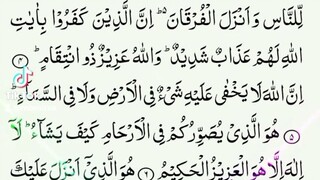 لِّلنَّاسِ وَاَنْزَلَ الْفُرْقَانَ ۬ؕ اِنَّ الَّذِيْنَ كَفَرُوْا بِاٰيٰتِ
اللّٰهِ لَهُمْ عَذَابٌ شَدِيْدٌ ؕ وَاللّٰهُ عَزِيْزٌ ذُو انْتِقَامٍ ؕ ۴
اِنَّ اللّٰهَ لَا يَخْفٰى عَلَيْهِ شَىْءٌ فِى الْاَرْضِ وَلَا فِى السَّمَآءِ ؕ
۵ هُوَ الَّذِىْ يُصَوِّرُكُمْ فِى الْاَرْحَامِ كَيْفَ يَشَآءُ ؕ لَاۤ
اِلٰهَ اِلَّا هُوَ الْعَزِيْزُ الْحَكِيْمُ ۶ هُوَ الَّذِىْۤ اَنْزَلَ عَلَيْكَ